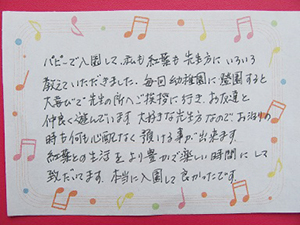 パピーで入園して、私も紅葉も先生方にいろいろ
教えていただきました。毎回幼稚園に登園すると
大喜びで先生の所へご挨拶に行き、お友達と
仲良く遊んでいます。大好きな先生方なので、お泊りの
時も何も心配なく預ける事が出来ます。
紅葉との生活をより豊かで楽しい時間にして
頂いてます。本当に入園して良かったです。